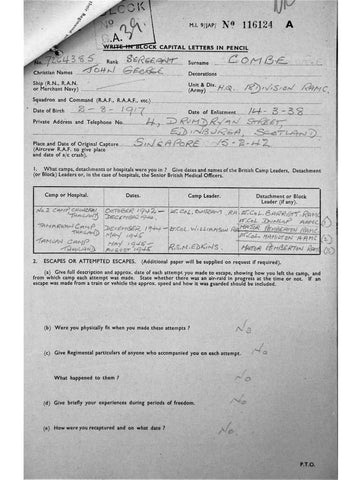 BLOCK
G.A. 39.
M.I. 9/JAP/ Nº 116124 A
WRITE IN BLOCK CAPITAL LETTERS IN PENCIL
No. 7264385 Rank SERGEANT Surname COMBE
Christian Names JOHN GEORGE Decorations
Ship (R.N., R.A.N. or Merchant Navy) Unit & Div. (Army) H.Q. 18 DIVISION RAMC.
Squadron and Command (R.A.F., R.A.A.F., etc.)
Date of Birth 2-8-1917 Date of Enlistment 14-3-38
Private Address and Telephone No. 4, DRUMDRYAN STREET
EDINBURGH, SCOTLAND
Place and Date of Original Capture SINGAPORE 15-2-42
(Aircrew R.A.F. to give place and date of a/c crash).
1. What camps, detachments or hospitals were you in? Give dates and names of the British Camp Leaders, Detachment (or Block) Leaders or, in the case of hospitals, the Senior British Medical Officers.
Camp or Hospital. Dates. Camp Leader. Detachment or Block Leader (if any).
No.2 CAMP, CHUNGKAI THAILAND OCTOBER 1942- DECEMBER 1944. LT. COL. OUTRAM RA LT. COL. BARRETT RAMC
LT. COL. DUNLOP AAMC
TAMARKAN CAMP THAILAND DECEMBER 1944- MAY 1945 LT. COL. WILLIAMSON RA MAJOR PEMBERTON RAMC (1)
LT. COL. HAMILTON AAMC (2)
TAMUAN CAMP THAILAND MAY 1945- AUGUST 1945 R.S.M. EDKINS MAJOR PEMBERTON RAMC (3)
2. ESCAPES OR ATTEMPTED ESCAPES. (Additional paper will be supplied on request if required).
(a) Give full description and approx. date of each attempt you made to escape, showing how you left the camp, and from which camp each attempt was made. State whether there was an air-raid in progress at the time or not. If an escape was made from a train or vehicle the approx. speed and how it was guarded should be included.
(b) Were you physically fit when you made these attempts? No
(c) Give Regimental particulars of anyone who accompanied you on each attempt. No
What happened to them? No
(d) Give briefly your experiences during periods of freedom. No
(e) How were you recaptured and on what date? No.
P.T.O.